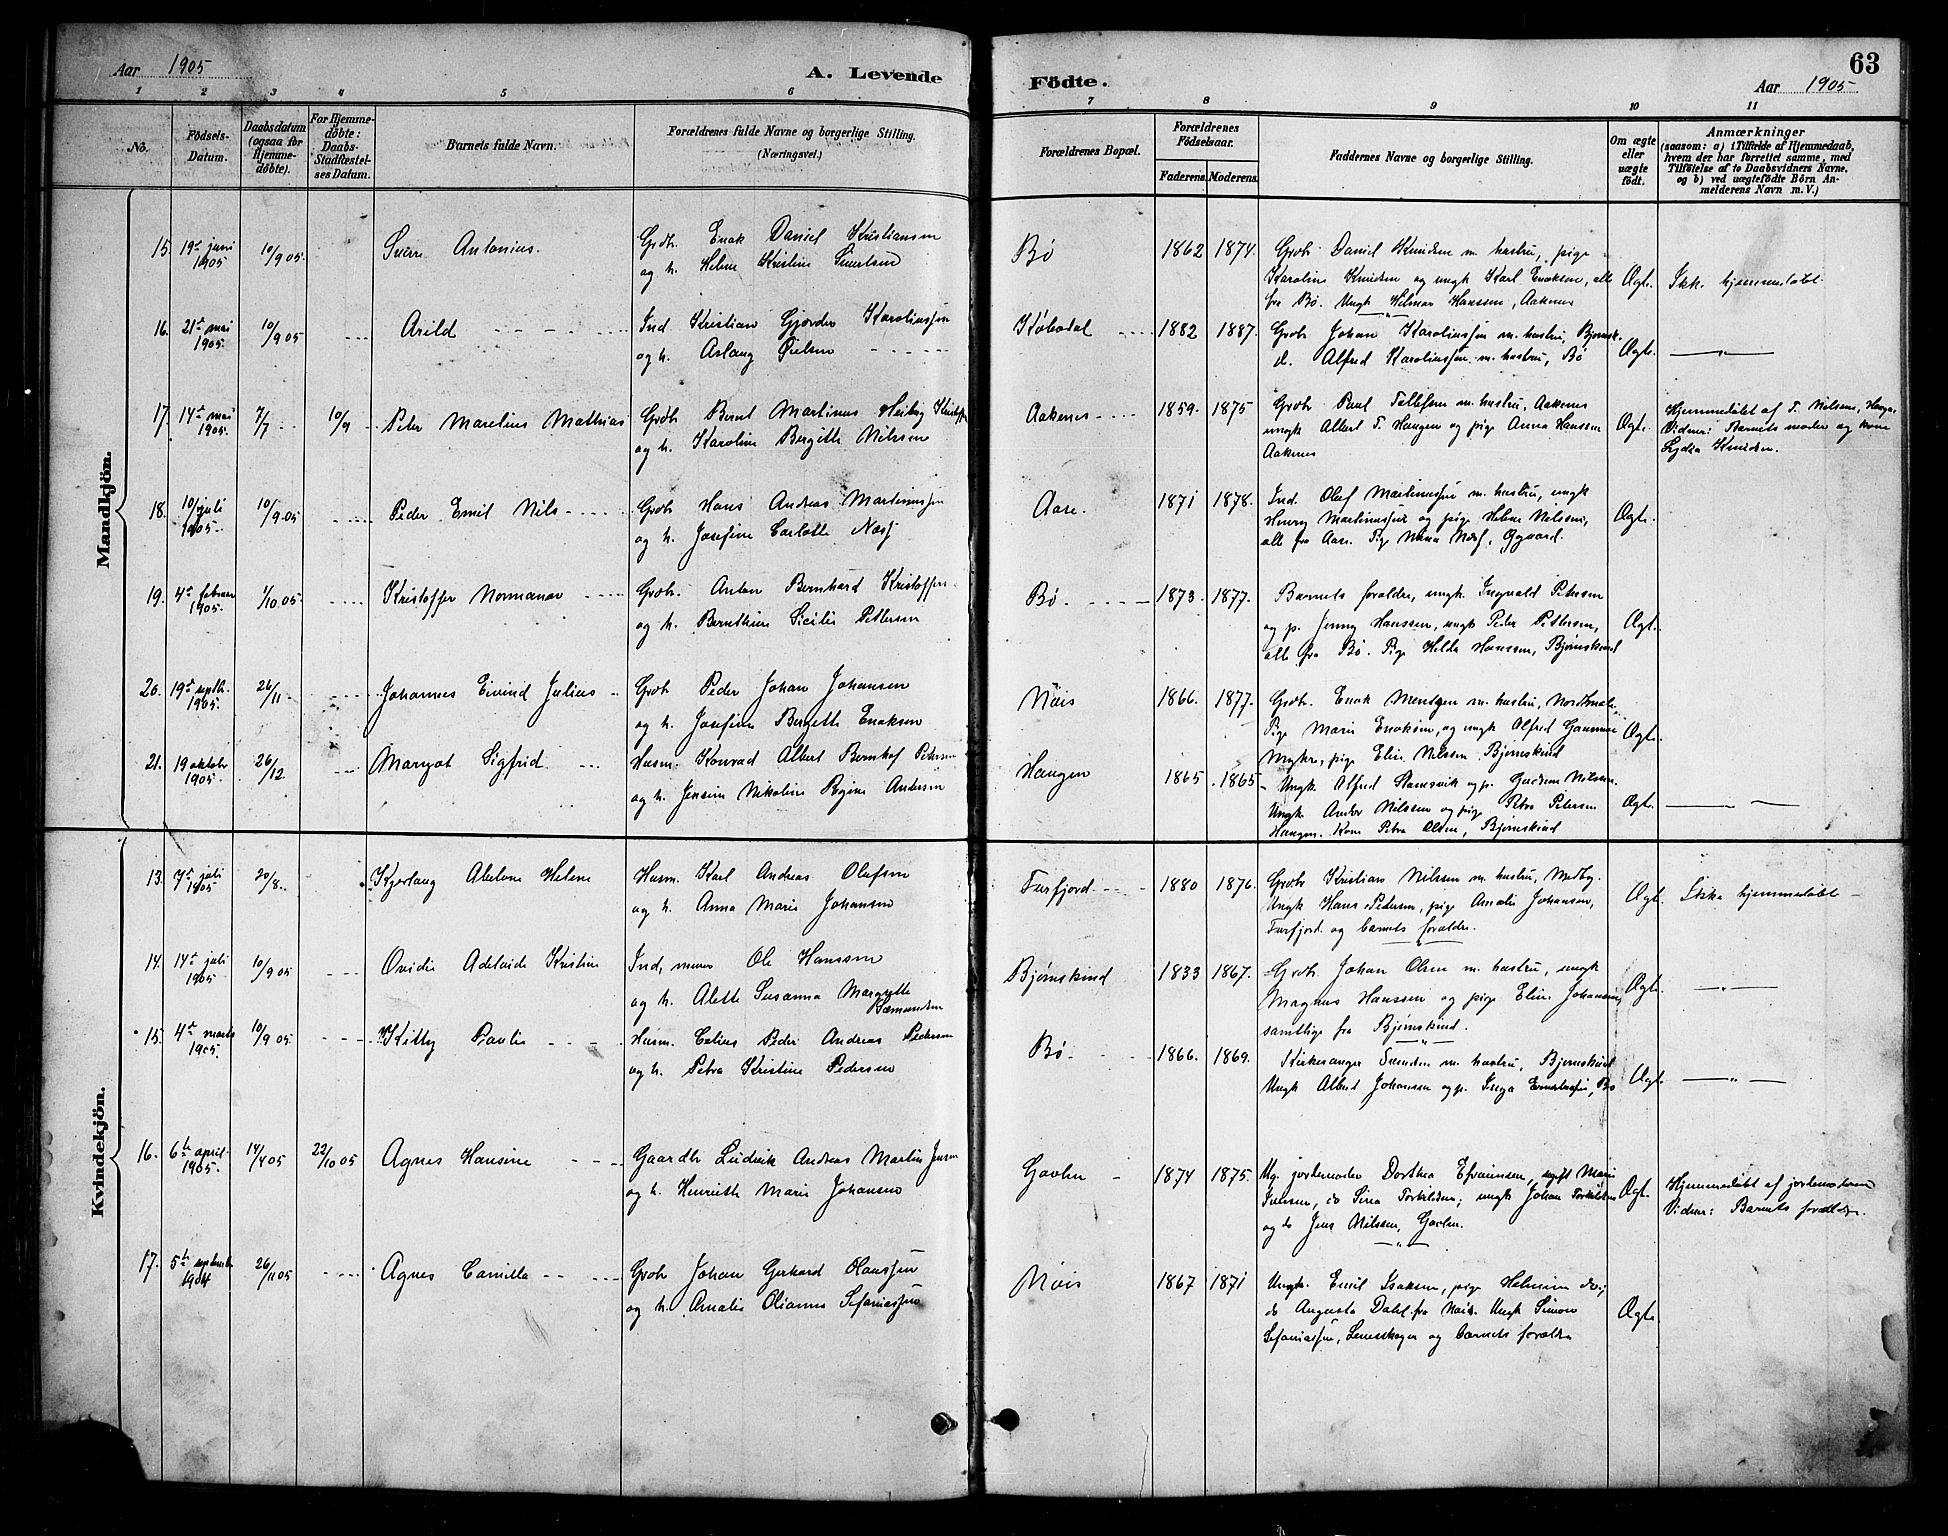 Aar 1905
A. Levende Födte.
63
Aar 1905
1 2 3 4 5 6 7 8 9 10 11
No.
Födsels-Datum.
Daabsdatum (ogsaa for Hjemmedöbte).
For Hjemmedöbte: Daabs-Stadfæstelses Datum.
Barnets fulde Navn.
Forældrenes fulde Navne og borgerlige Stilling.
(Næringsvei.)
Forældrenes Bopæl.
Forældrenes Födselsaar.
Faderens. Moderens.
Faddernes Navne og borgerlige Stilling.
Om ægte eller uægte födt.
Anmærkninger
(saasom: a) i Tilfælde af Hjemmedaab, hvem der har forrettet samme, med Tilföielse af to Daabsvidners Navne, og b) ved uægtefödte Börn Anmelderens Navn m. V.)
Mandkjön.
15. 19de juni 1905 10/9 05 Sverre Antonius.
Grdb. Enok Daniel Kristiansen
og h. Helene Kristine Sivertsen
Bø 1862 1874.
Grdb. Daniel Knudsen m. hustru, pige
Karoline Knudsen og ungk Karl Enoksen, alle
fra Bø. Ungk Hilmar Hanssen, Aakenes
Ægt. Ikke hjemmedøbt.
16. 21de mai 1905. 10/9 05 Arild
Ind. Kristian Gjørder Karoliussen
og h. Aslaug
Kobbedal 1882 1887.
Grdb. Johan Karoliussen m. hustru, Bjørnsk.
do. Alfred Karoliussen m. hustru, Bø
Ægt. — " —
17. 14de mai 1905. 7/7 10/9 Peter Marelius Mathias
Grdb Bernt Martinus Heiberg
og h. Karoline Bergitte Nilssen
Aakenes 1859. 1875
Grdb Paul Tollefsen m. hustru, Aakenes
ungk Albert F. Haugen og pige Anna Hanssen
Aakenes
Ægt. Hjemmedøbt af T. Nilssen, Haugn.
Vidner: Barnets moder og kone
Lydia Knudsen.
18. 10/juli 1905. 10/9 05 Peder Emil Nils
Grdb Hans Andreas Martinussen
og h. Josefine Carlotte Næss
Aase. 1871 1878.
Ind. Oluf Martinussen m. hustru, ungk
Henry Martinussen og pige Helene Nilssen,
alle fra Aase. Pige Nanna Næss, Ögaard.
Ægt.
19. 4de februar 1905. 1/10 05 Kristoffer Normanov
Grdb. Anton Bernhard Kristoffersen
og h. Bernthine Sicilie Pettersen
Bø. 1873. 1877.
Barnets forældre, ungk. Ingvald Petersen
og p. Jenny Hanssen, ungk Peder Pettersen,
alle fra Bø. Pige Hilda Hanssen, Bjørnskind
Ægt.
20. 19de septb. 1905. 26/11 Johannes Eivind Julius
Grdb Peder Johan Johansen
og h. Josefine Bergitte Enoksen
Nøis 1866. 1877.
Grdb. Enok Mentzen m. hustru,
Pige Marie Enoksen, og ungk Alfred
pige Eline Nilssen Bjørnskind
Ægt.
21. 19 oktobr 1905. 26/12 Margot Sigfrid
Husm. Konrad Albert Bernhof Petersen
og h. Jensine Nikoline Regine Andersen
Haugen 1865 1865
Ungk. Alfred Stamsvik og p. Nilssen.
Ungk Andor Nilssen og pige Petra Petersen
Haugen. Kone Petra Olsen, Bjørnskind
Ægt. — " —
Kvindekjön.
13. 7de juli 1905 20/8. Kjerlaug Abelone Helene
Husm. Karl Andreas Olufsen
og h. Anna Marie Johansen
Forfjord. 1880 1876.
Grdb Kristian Nilssen m. hustru, Medby.
Ungk Hans Pedersen, pige Amalie Johansen,
Forfjord og barnets forældre.
Ægt. Ikke hjemmedøbt
14. 14de juli 1905 10/9 05 Ovidie Adelaide Kristine
Ind., murer Ole Hanssen
og h. Alette Susanna Margrette
Sæmundsen
Bjørnskind 1833 1867.
Grdb. Johan Olsen m. hustru, ungk
Magnus Hanssen og pige Eline Johansen,
samtlige fra Bjørnskind.
Ægt. — " —
15. 4de marts 1905 10/9 05 Kitty Pavlie
Husm. Celius Peder Andreas Pedersen
og h. Petra Kristine Pedersen
Bø. 1866. 1869.
Kirkesanger m. hustru, Bjørnskind
Ungk Albert Johansen og p. Inga Bø
Ægt. — " —
16. 6te april 1905. 14/4 05 22/10 05 Agnes Hansine
Gaardbr Ludvik Andreas Martin Jensen
og h. Henriette Marie Johansen
Gavlen 1874 1875.
Ug. jordemoder Dorthea Efraimsen, ugift Marie
Iversen, do Sina Torkildsen; ungk Johan Torkildsen
og do Jens Nilssen, Gavlen.
Ægt. Hjemmedøbt af jordemoderen
Vidner: Barnets forældre.
17. 5te septembr 1904 26/11 05 Agnes Camilla
Grdb Johan Gerhard Olaussen
og h. Amalie Olianna Sefaniassen
Nøis 1867 1871
Ungk. Emil Isaksen, pige Helmine do;
do Augusta Dahl fra Nøis. Ungk Simon
Sefaniassen, og barnets forældre
Ægt.